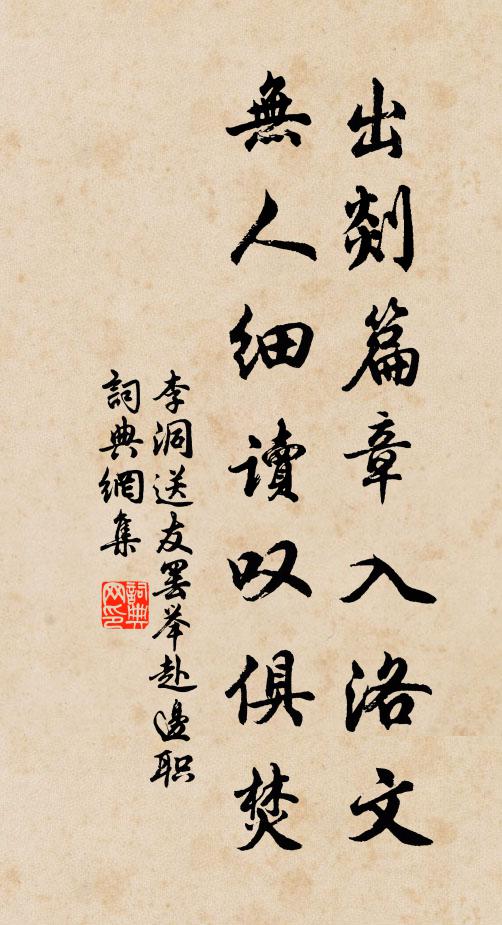 出剡篇章入洛文
無人细讀叹俱焚
李洞送友罢举赴邊职
詞典網集
詞典
网印